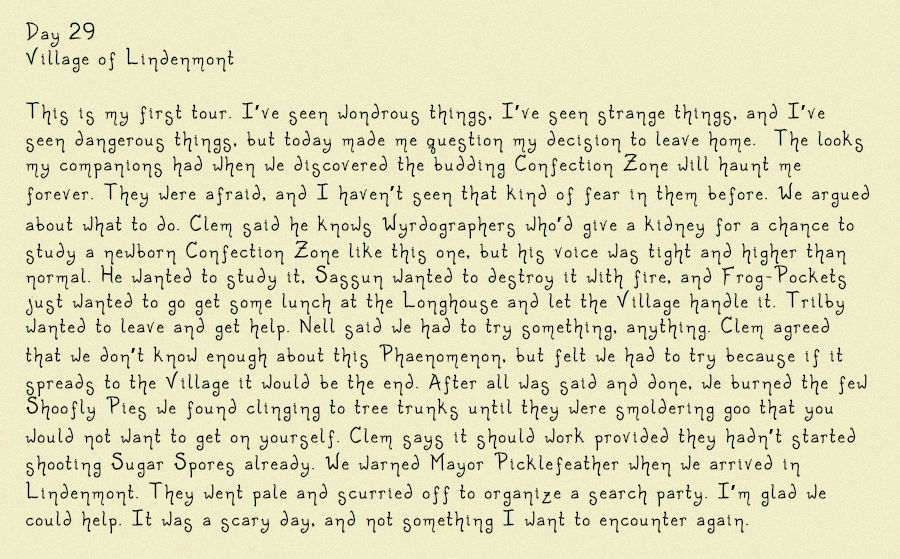 Day 29
Village of Lindenmont
This is my first tour. I've seen wondrous things, I've seen strange things, and I've
seen dangerous things, but today made me question my decision to leave home. The looks
my companions had when we discovered the budding Confection Zone will haunt me
forever. They were afraid, and I haven't seen that kind of fear in them before. We argued
about what to do. Clem said he knows Wyrdographers who'd give a kidney for a chance to
study a newborn Confection Zone like this one, but his voice was tight and higher than
normal. He wanted to study it, Sassun wanted to destroy it with fire, and Frog-Pockets
just wanted to go get some lunch at the Longhouse and let the Village handle it. Trilby
wanted to leave and get help. Nell said we had to try something, anything. Clem agreed
that we don't know enough about this Phaenomenon, but felt we had to try because if it
spreads to the Village it would be the end. After all was said and done, we burned the few
Shoofly Pies we found clinging to tree trunks until they were smoldering goo that you
would not want to get on yourself. Clem says it should work provided they hadn't started
shooting Sugar Spores already. We warned Mayor Picklefeather when we arrived in
Lindenmont. They went pale and scurried off to organize a search party. I'm glad we
could help. It was a scary day, and not something I want to encounter again.